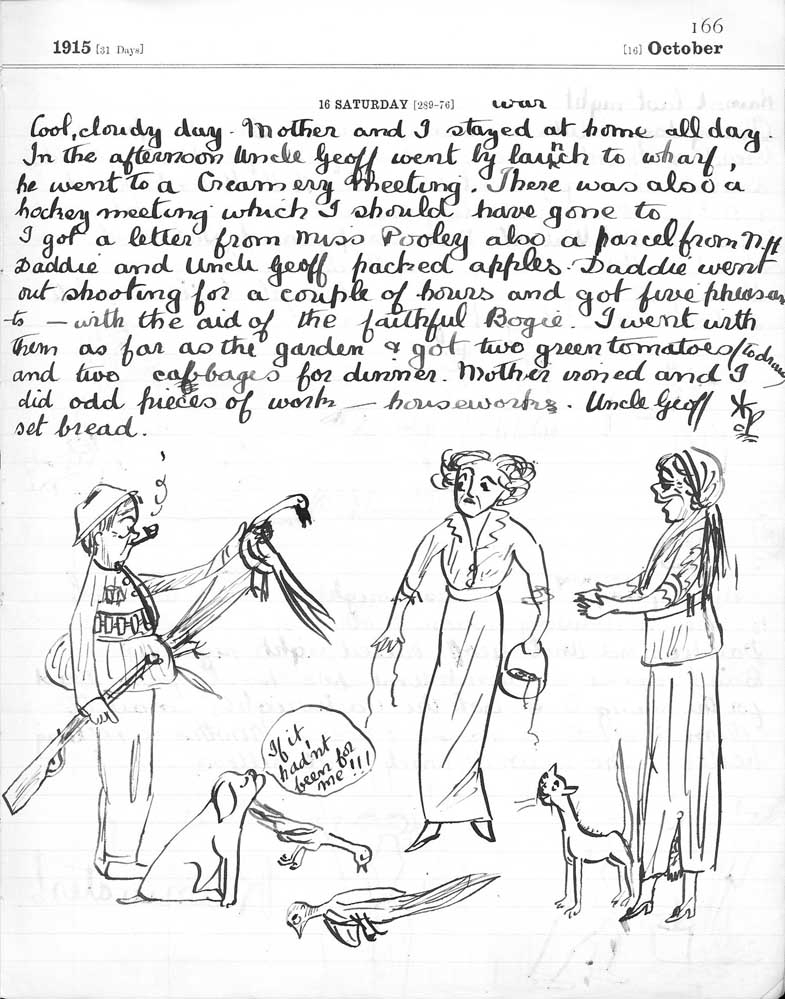 166
1915 [31 Days] [16] October
16 SATURDAY [289-76] war
Cool, cloudy day. Mother and I stayed at home all day.
In the afternoon Uncle Geoff went by launch to wharf,
he went to a Creamery Meeting. There was also a
hockey meeting which I should have gone to.
I got a letter from Miss Pooley also a parcel from
Daddie and Uncle Geoff packed apples. Daddie went
out shooting for a couple of hours and got five pheasan
ts — with the aid of the faithful Bogie. I went with
them as far as the garden & got two green tomatoes
and two cabbages for dinner. Mother ironed and I
did odd pieces of work — houseworks. Uncle Geoff
set bread.
If it
hadn't
been for
me!!!